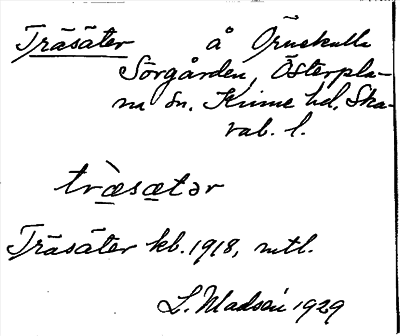 Träsäter å Örnekulla
Sörgården, Österpla-
na sn. Kinne hd. Ska-
rab. l.
træ̀sætər
Träsäter kb. 1918, mtl.
L. Madsén 1929